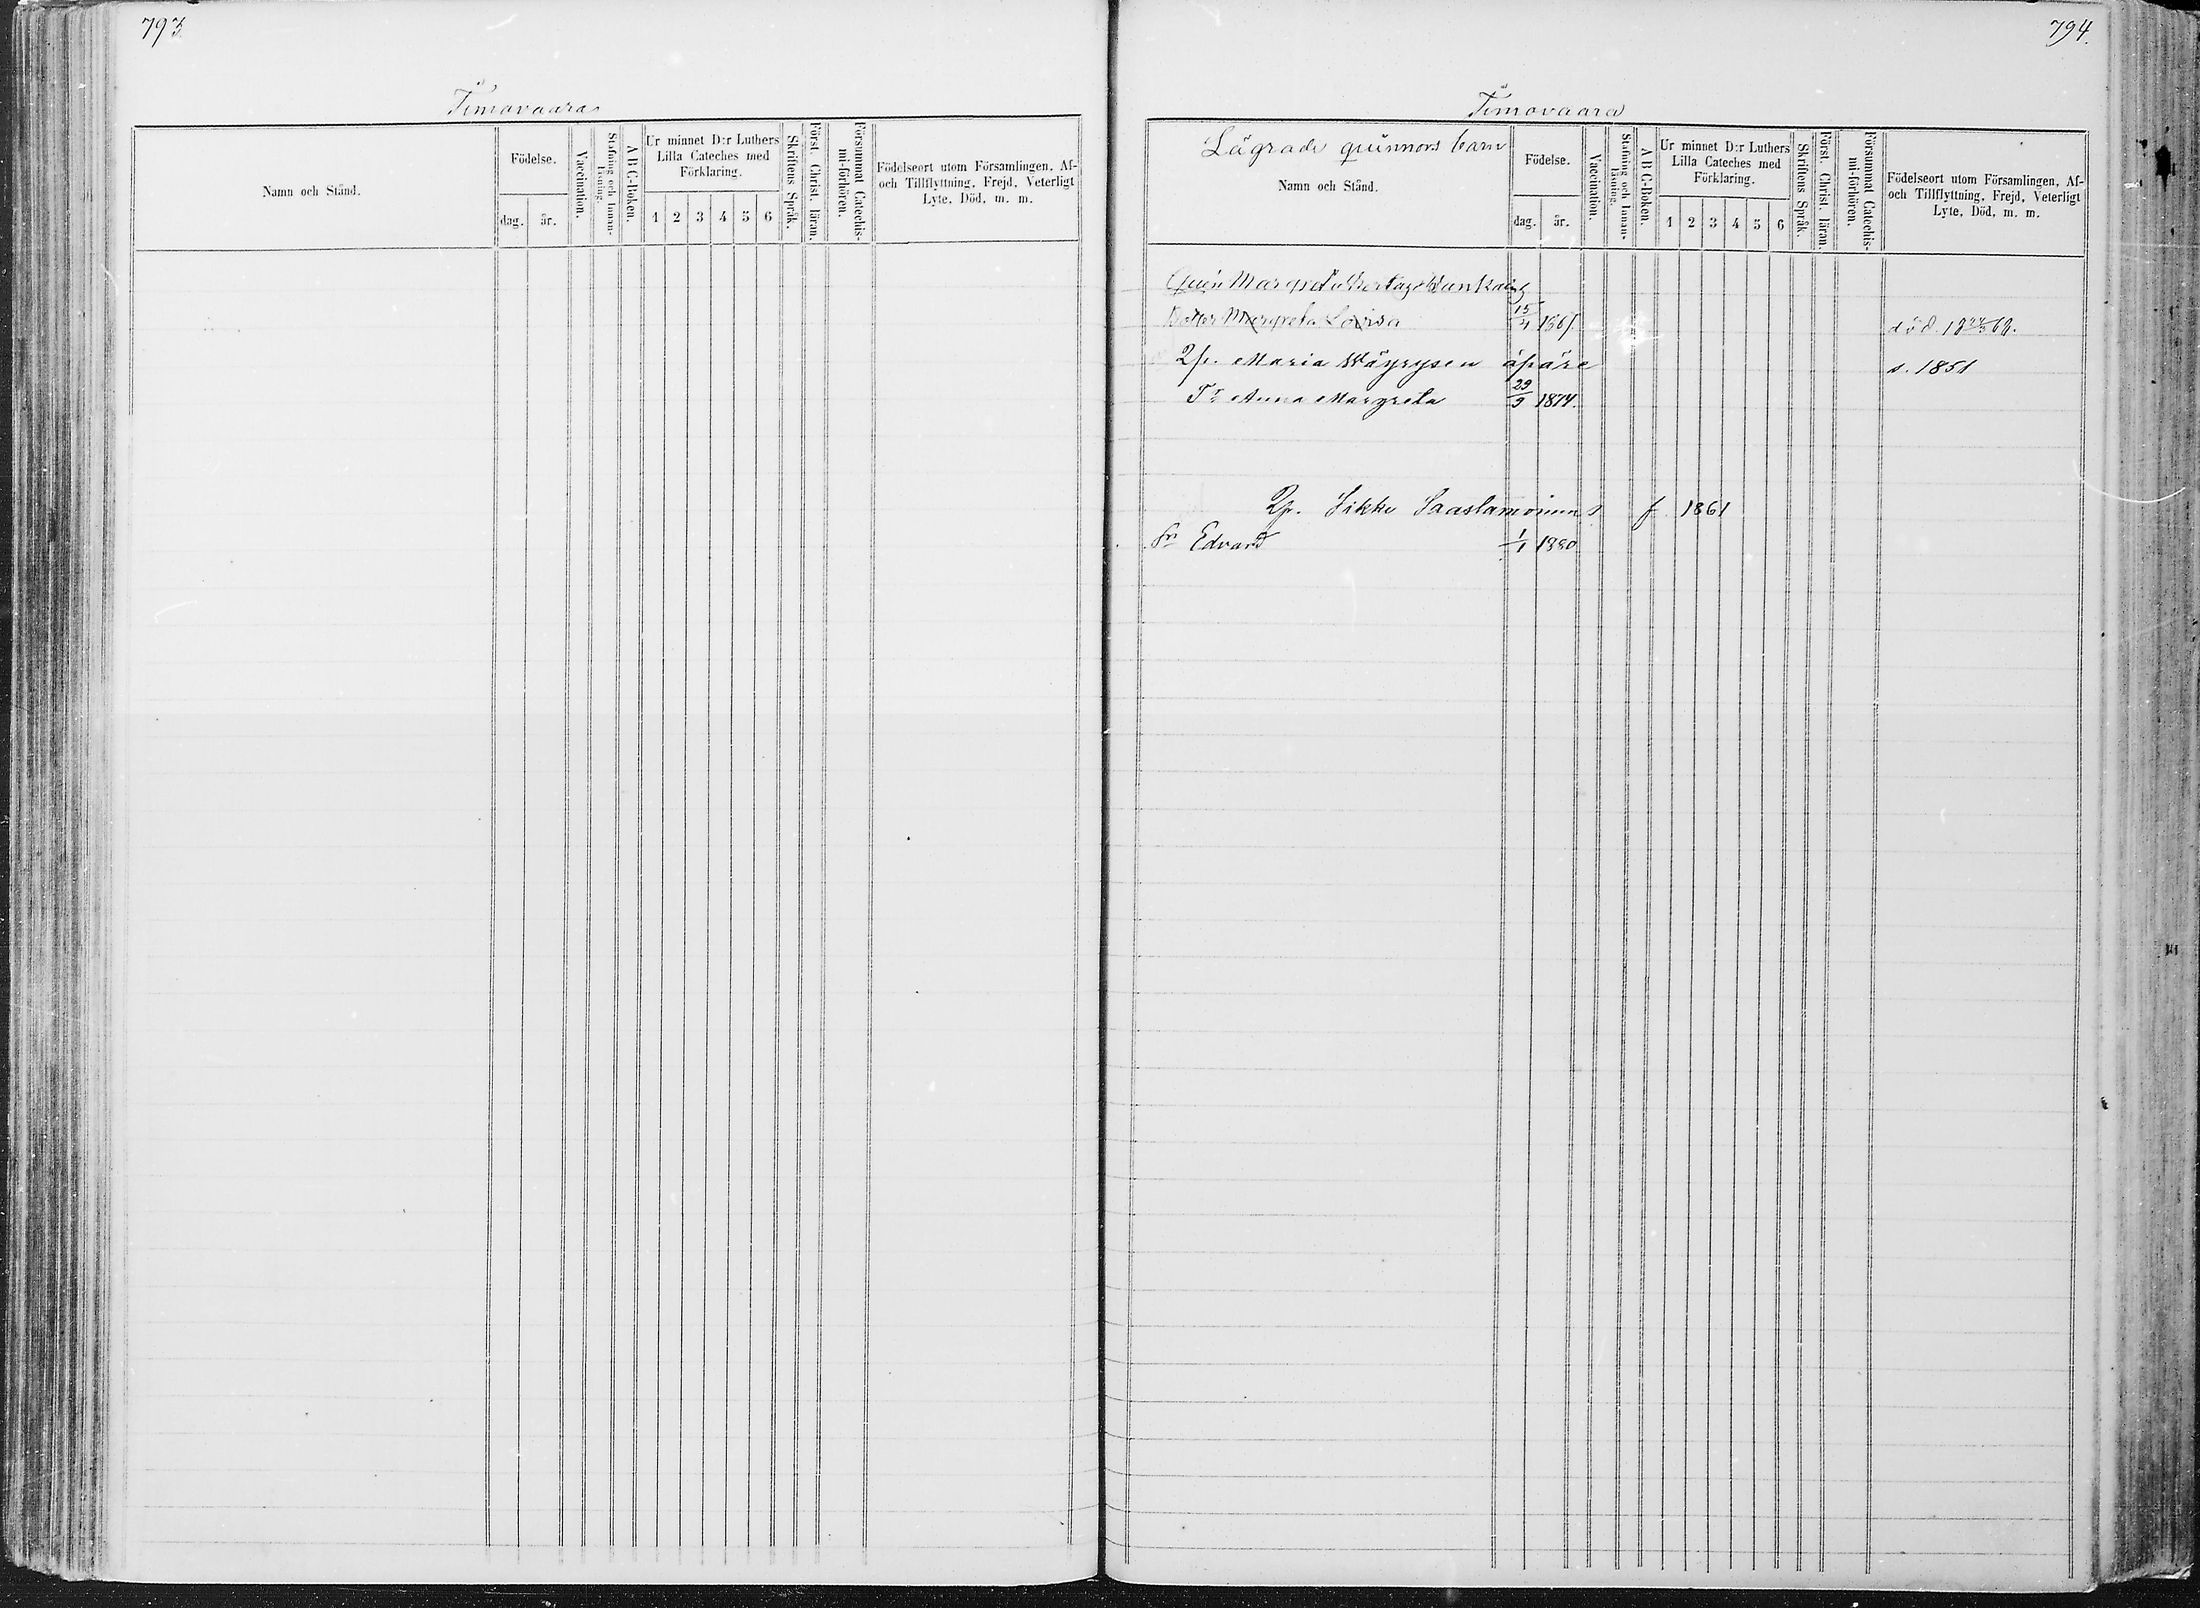 793.
Timovaara
Namn och Stånd.
Födelse.
dag. år.
Vaccination.
Stafning och Innan-
läsning.
A B C-Boken.
Ur minnet D:r Luthers
Lilla Cateches med
Förklaring.
1 2 3 4 5 6
Skriftens Språk.
Först. Christ. läran.
Försummat Catechis-
mi-förhören.
Födelseort utom Församlingen, Af-
och Tillflyttning, Frejd, Veterligt
Lyte, Död, m. m.
794.
Timovaara
Lägrade quinnors barn
Namn och Stånd.
Födelse.
dag. år.
Vaccination.
Stafning och Innan-
läsning.
A B C-Boken.
Ur minnet D:r Luthers
Lilla Cateches med
Förklaring.
1 2 3 4 5 6
Skriftens Språk.
Först. Christ. läran.
Försummat Catechis-
mi-förhören.
Födelseort utom Församlingen, Af-
och Tillflyttning, Frejd, Veterligt
Lyte, Död, m. m.
Margreta
Dotter Margreta Lovisa 15/4 1867. död. 18 24/5 68.
Qp. Maria Wäyrysen äpäre s. 1851
Tr Anna Margreta 29/9 1874.
Qp. Sikke Saastamoinens f. 1861
Sn Edvard 1/1 1880